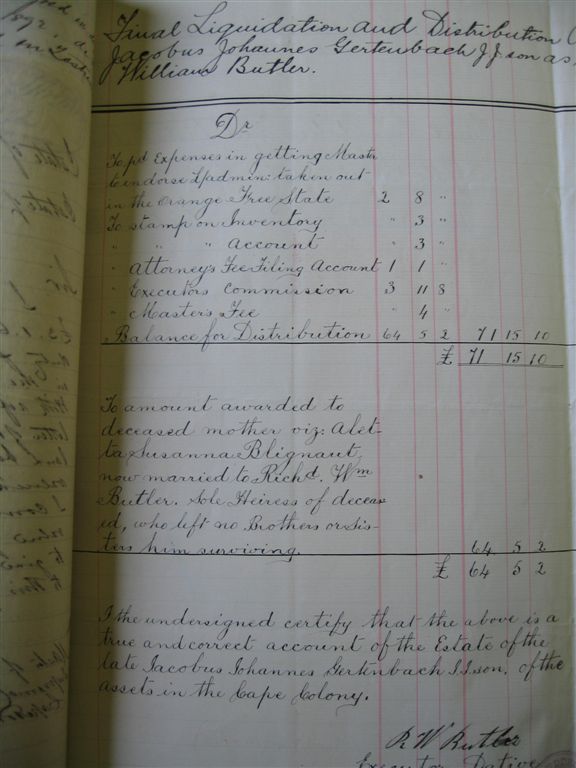 Final Liquidation and Distribution
Jacobus Johannes Gertenbach J J son as
William Butler.
Dr
To pd Expenses in getting Mastr
to endorse L/admin: taken out
in the Orange Free State 2 8 "
To stamp on Inventory " 3 "
" " " Account " 3 "
" Attorneys Fee Filing Account 1 1 "
" Executors Commission 3 11 8
" Masters Fee " 4 "
Balance for Distribution 64 5 2 71 15 10
£ 71 15 10
To amount awarded to
deceased mother viz: Alet-
ta Susanna Blignaut,
now married to Richd. Wm
Butler. Sole Heiress of deceas-
ed, who left no Brothers or Sis-
ters him surviving. 64 5 2
£ 64 5 2
I the undersigned certify that the above is a
true and correct account of the Estate of the
late Jacobus Johannes Gertenbach J.J. son. of the
assets in the Cape Colony.
R W Butler
Executor Dative